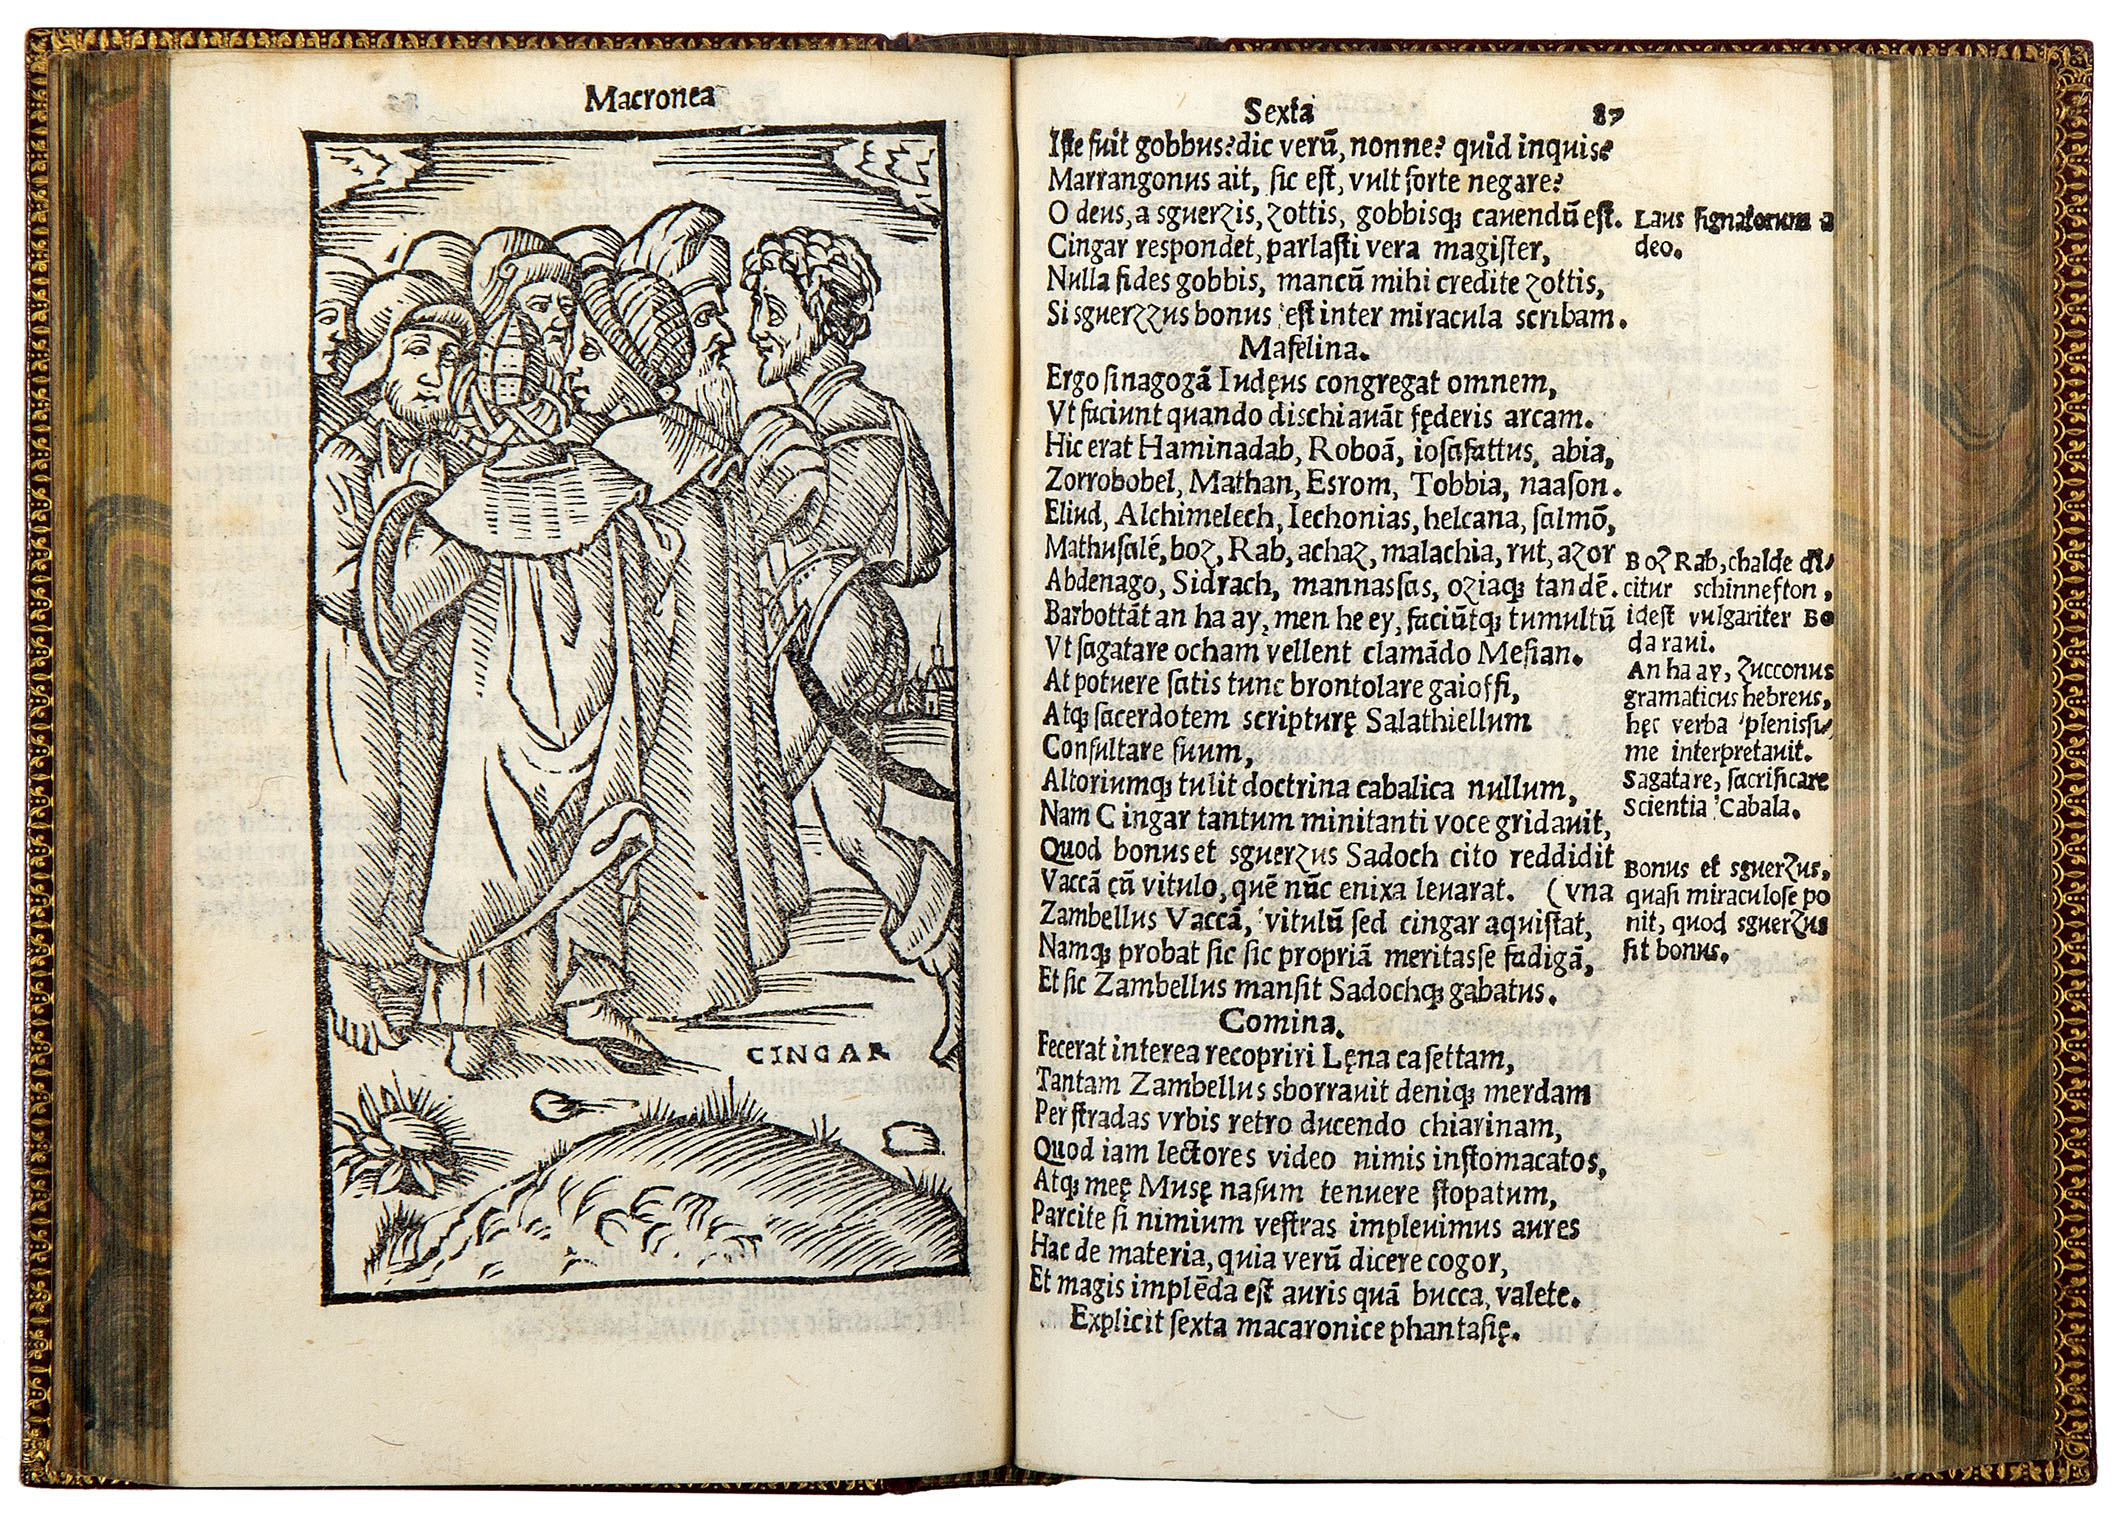 Macronea
CINGAR
Sexta 87
Iste fuit gobbus? dic verũ, nonne? quid inquis?
Marrangonus ait, sic est, vult forte negare?
O deus, a sguerzis, zottis, gobbisqꝫ cauendũ est.
Cingar respondet, parlasti vera magister,
Nulla fides gobbis, mancũ mihi credite zottis,
Si sguerzzus bonus est inter miracula scribam.
Mafelina.
Ergo sinagogã Iudęus congregat omnem,
Vt faciunt quando dischiauãt fęderis arcam.
Hic erat Haminadab, Roboã, iosafattus, abia,
Zorrobobel, Mathan, Esrom, Tobbia, naason.
Eliud, Alchimelech, Iechonias, helcana, salmõ,
Mathusalẽ, boz, Rab, achaz, malachia, rut, azor
Abdenago, Sidrach, mannassas, oziaqꝫ tandẽ.
Barbottãt an ha ay, men he ey, faciũtqꝫ tumultũ
Vt sagatare ocham vellent clamãdo Mesian.
At potuere satis tunc brontolare gaioffi,
Atqꝫ sacerdotem scripturę Salathiellum
Consultare suum,
Altoriumqꝫ tulit doctrina cabalica nullum,
Nam Cingar tantum minitanti voce gridauit,
Quod bonus et sguerzus Sadoch cito reddidit
Vaccã cũ vitulo, quẽ nũc enixa leuarat. (vna
Zambellus Vaccã, vitulũ sed cingar aquistat,
Namqꝫ probat sic sic propriã meritasse fadigã,
Et sic Zambellus mansit Sadochqꝫ gabatus.
Comina.
Fecerat interea recopriri Lęna casettam,
Tantam Zambellus sborrauit deniqꝫ merdam
Per stradas vrbis retro ducendo chiarinam,
Quod iam lectores video nimis instomacatos,
Atqꝫ meę Musę nasum tenuere stopatum,
Parcite si nimium vestras impleuimus aures
Hac de materia, quia verũ dicere cogor,
Et magis implẽda est auris quã bucca, valete.
Explicit sexta macaronice phantasię.
Laus signatorum a
deo.
Boz Rab, chalde di⸗
citur schinnefton,
idest vulgariter Bo
da raui.
An ha ay, zucconus
gramaticus hebreus,
hęc verba plenissi⸗
me interpretauit.
Sagatare, sacrificare
Scientia Cabala.
Bonus et sguerzus,
quasi miraculose po
nit, quod sguerzus
sit bonus.